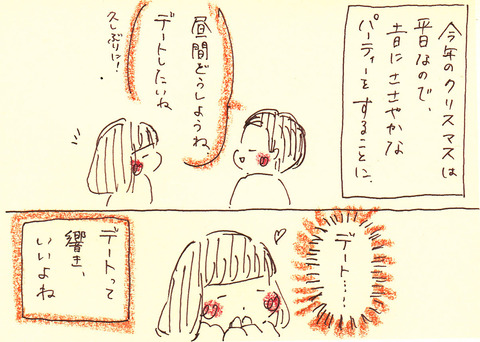 今年のクリスマスは
平日なので、
昔にささやかな
パーティーをすることに。
昼間どうしようね、
デートしたいね
久しぶりに!
デート……
デートって
響き、
いいよね